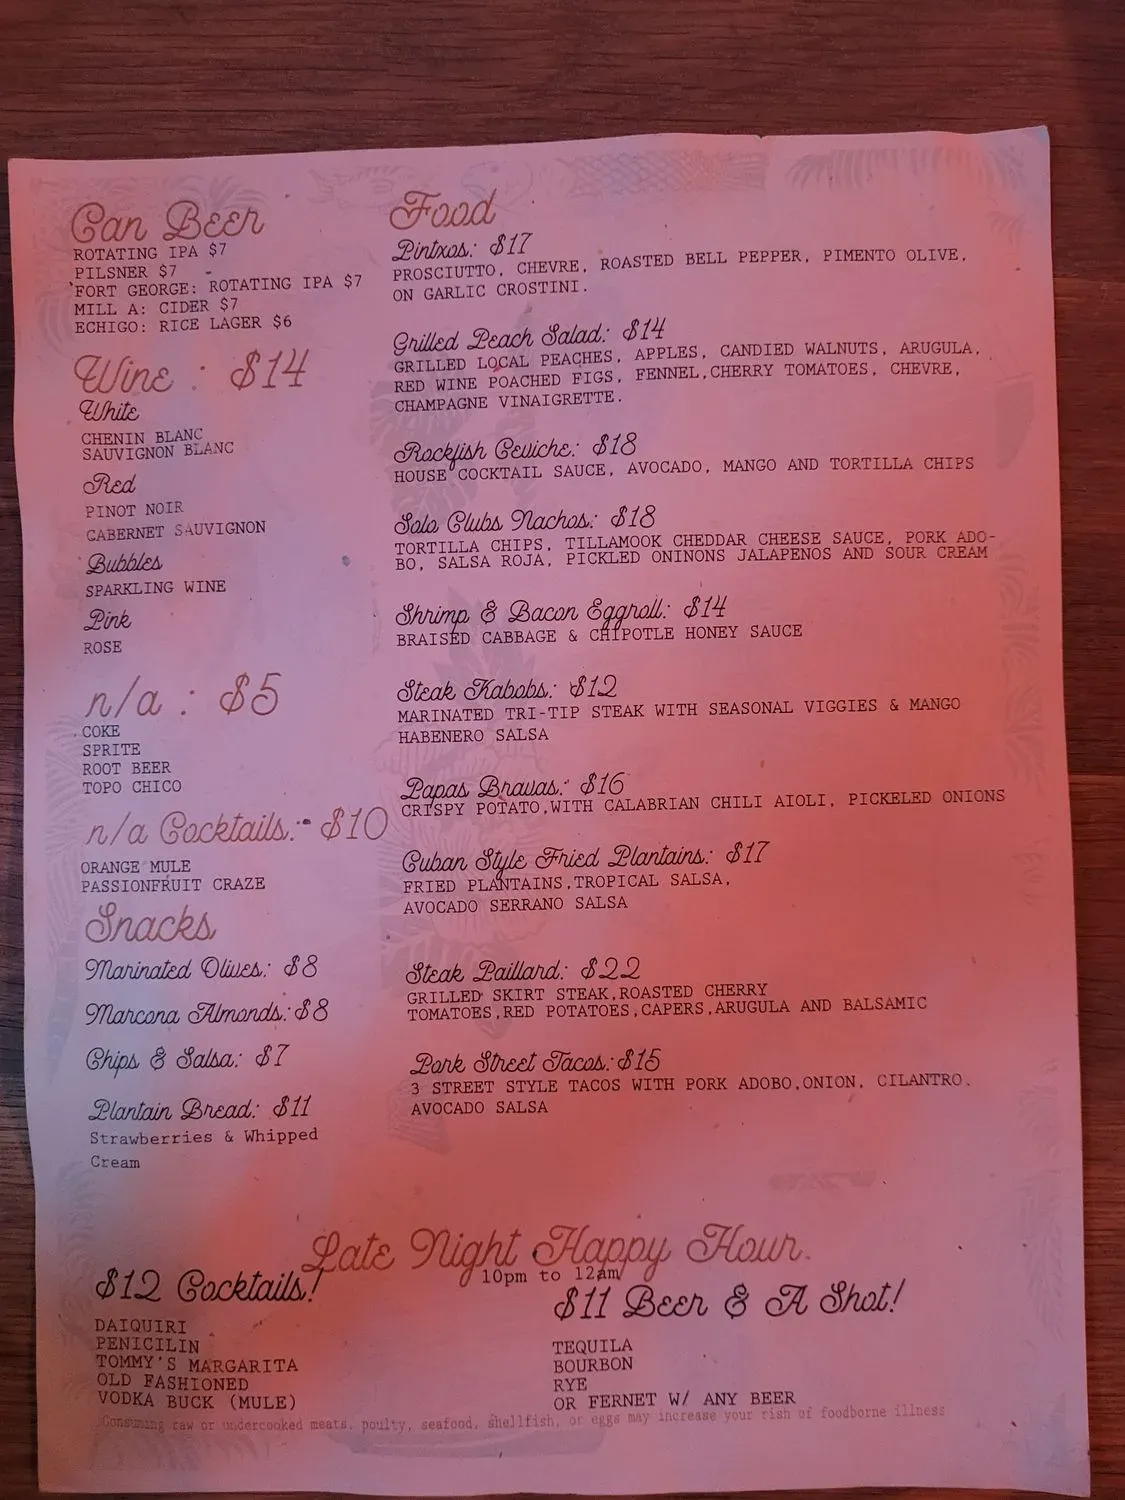 Can Beer
ROTATING IPA $7
PILSNER $7
FORT GEORGE: ROTATING IPA $7
MILL A: CIDER $7
ECHIGO: RICE LAGER $6
Wine : $14
White
CHENIN BLANC
SAUVIGNON BLANC
Red
PINOT NOIR
CABERNET SAUVIGNON
Bubbles
SPARKLING WINE
Pink
ROSE
n/a : $5
COKE
SPRITE
ROOT BEER
TOPO CHICO
n/a Cocktails: $10
ORANGE MULE
PASSIONFRUIT CRAZE
Snacks
Marinated Olives: $8
Marcona Almonds: $8
Chips & Salsa: $7
Plantain Bread: $11
Strawberries & Whipped
Cream
Food
Pintxos: $17
PROSCIUTTO, CHEVRE, ROASTED BELL PEPPER, PIMENTO OLIVE,
ON GARLIC CROSTINI.
Grilled Peach Salad: $14
GRILLED LOCAL PEACHES, APPLES, CANDIED WALNUTS, ARUGULA,
RED WINE POACHED FIGS, FENNEL,CHERRY TOMATOES, CHEVRE,
CHAMPAGNE VINAIGRETTE.
Rockfish Ceviche: $18
HOUSE COCKTAIL SAUCE, AVOCADO, MANGO AND TORTILLA CHIPS
Solo Clubs Nachos: $18
TORTILLA CHIPS, TILLAMOOK CHEDDAR CHEESE SAUCE, PORK ADO-
BO, SALSA ROJA, PICKLED ONINONS JALAPENOS AND SOUR CREAM
Shrimp & Bacon Eggroll: $14
BRAISED CABBAGE & CHIPOTLE HONEY SAUCE
Steak Kabobs: $12
MARINATED TRI-TIP STEAK WITH SEASONAL VIGGIES & MANGO
HABENERO SALSA
Papas Bravas: $16
CRISPY POTATO,WITH CALABRIAN CHILI AIOLI, PICKELED ONIONS
Cuban Style Fried Plantains: $17
FRIED PLANTAINS,TROPICAL SALSA,
AVOCADO SERRANO SALSA
Steak Paillard: $22
GRILLED SKIRT STEAK,ROASTED CHERRY
TOMATOES,RED POTATOES,CAPERS,ARUGULA AND BALSAMIC
Pork Street Tacos: $15
3 STREET STYLE TACOS WITH PORK ADOBO,ONION, CILANTRO,
AVOCADO SALSA
Late Night Happy Hour.
10pm to 12am
$12 Cocktails!
DAIQUIRI
PENICILIN
TOMMY'S MARGARITA
OLD FASHIONED
VODKA BUCK (MULE)
$11 Beer & A Shot!
TEQUILA
BOURBON
RYE
OR FERNET W/ ANY BEER
Consuming raw or undercooked meats, poulty, seafood, shellfish, or eggs may increase your rish of foodborne illness